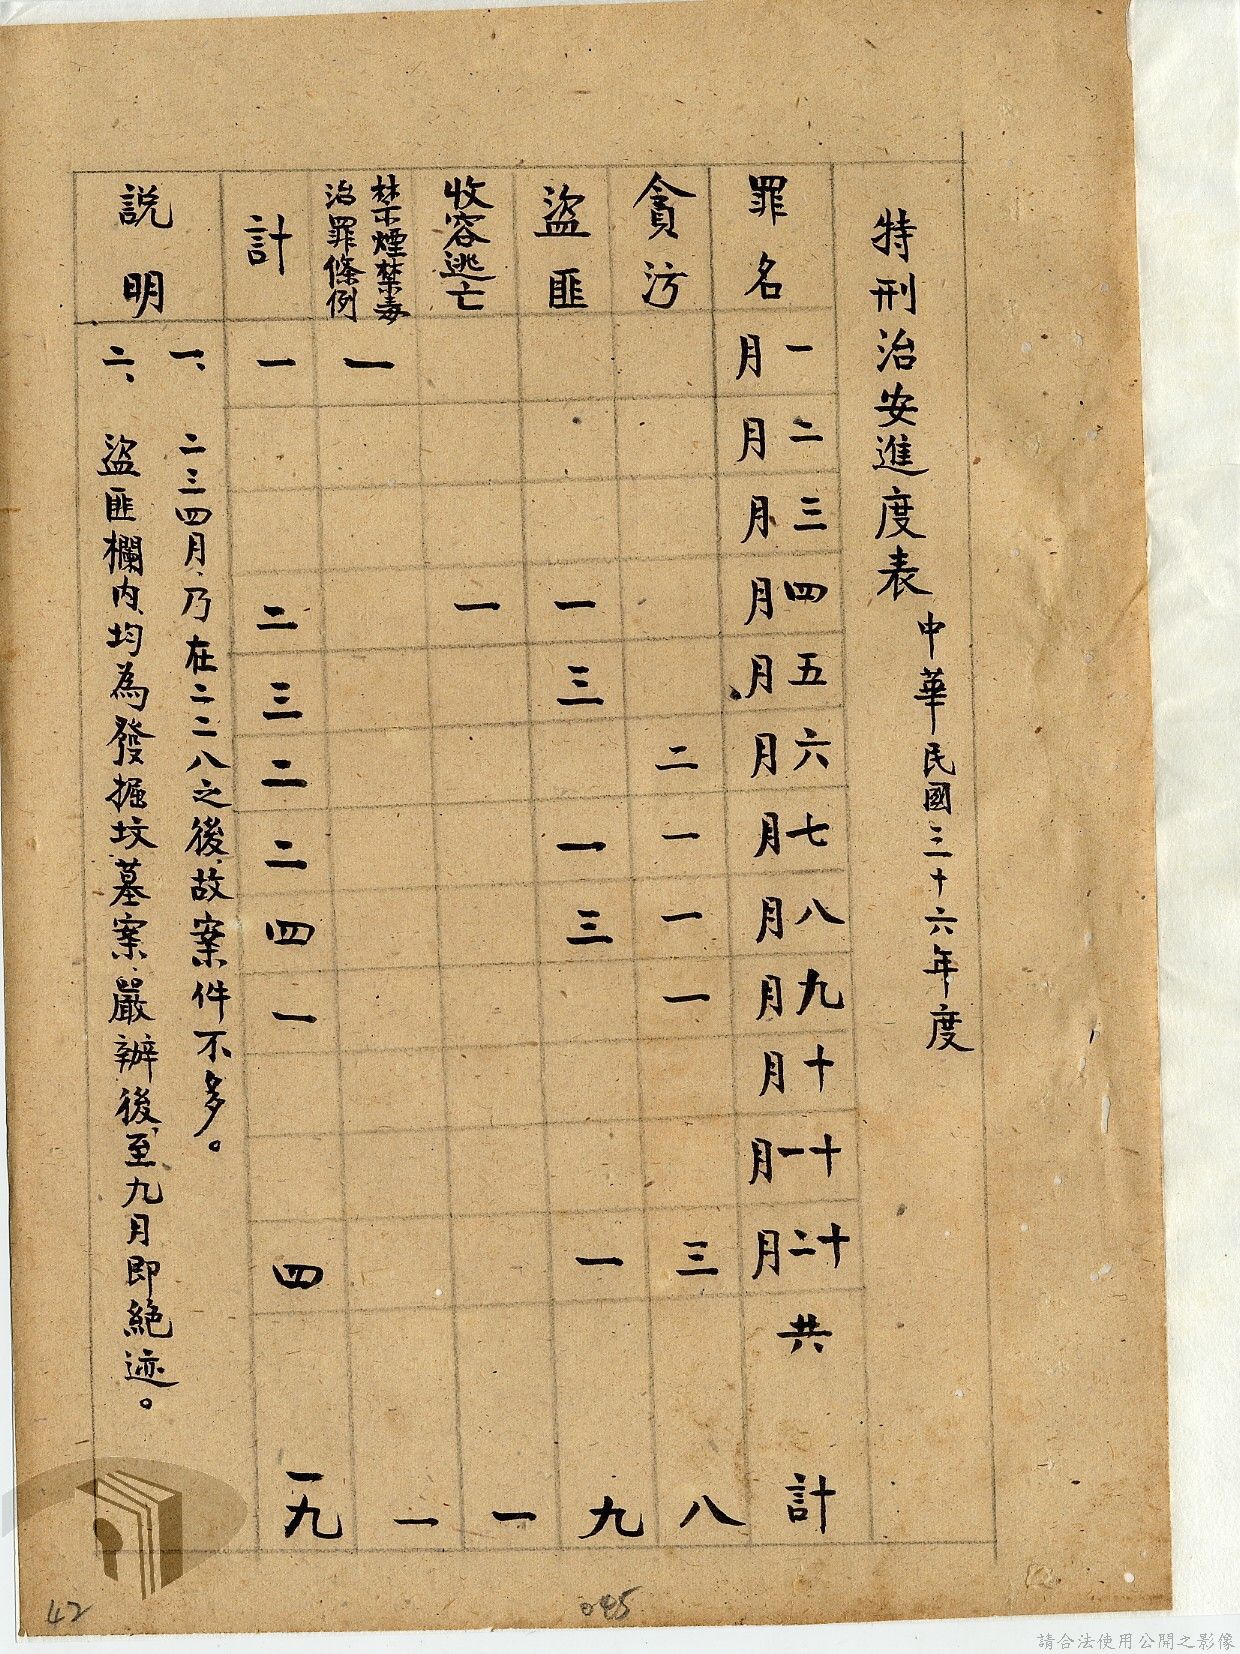 特刑治安進度表 中華民國三十六年度
罪名 一月 二月 三月 四月 五月 六月 七月 八月 九月 十月 十一月 十二月 共計
貪污 二 一 一 一 三 八
盜匪 一 三 一 三 一 九
收容逃亡 一 一
禁煙禁毒治罪條例 一 一
計 一 二 三 二 二 四 一 四 一九
説明
一、二三四月、乃在二二八之後、故案件不多。
二、盜匪欄内、均為發掘坟墓案、嚴辦後、至九月即絕迹。
42
045
請合法使用公開之影像